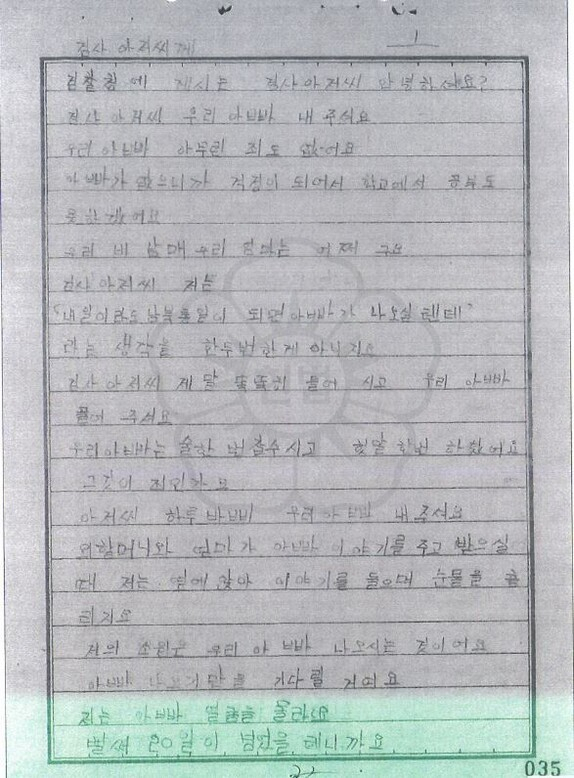 검사 아저씨께
1
검찰청에 계시는 검사아저씨 안녕하세요?
검사 아저씨 우리 아빠 내 주셔요
우리 아빠 아무런 죄도 없어요
아빠가 없으니까 걱정이 되어서 학교에서 공부도
못하겠어요
우리 네 남매 우리 엄마는 어쩌구요
검사아저씨 저는
"내일이라도 남북통일이 되면 아빠가 나오실텐데"
라는 생각을 한두번 한게 아니지요
검사 아저씨 제 말 똑똑히 들어 시고 우리 아빠
풀어 주셔요
우리아빠는 술한 번 잡수시고 헛말 한번 하셨어요
그것이 죄인가요
아저씨 하루 바삐 우리 아빠 내 주셔요
외할머니와 엄마가 아빠 이야기를 주고 받으실
때 저는 옆에 앉아 이야기를 들으며 눈물을 흘
리지요
저의 소원은 우리 아빠 나오시는 것이어요
아빠 나오기만을 기다릴 거여요
저는 아빠 얼굴을 몰라요
벌써 20일이 넘었을 테니까요
035